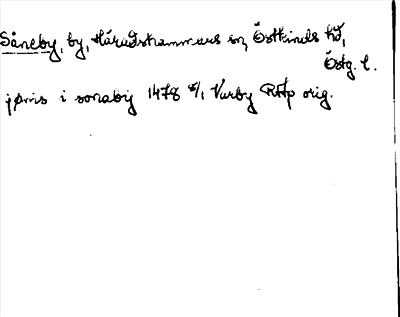 Såneby, by, Häradshammars sn, Östkinds hd,
Östg. l.
jønis i sonaby 1478 5/1 Vårby RAp orig.